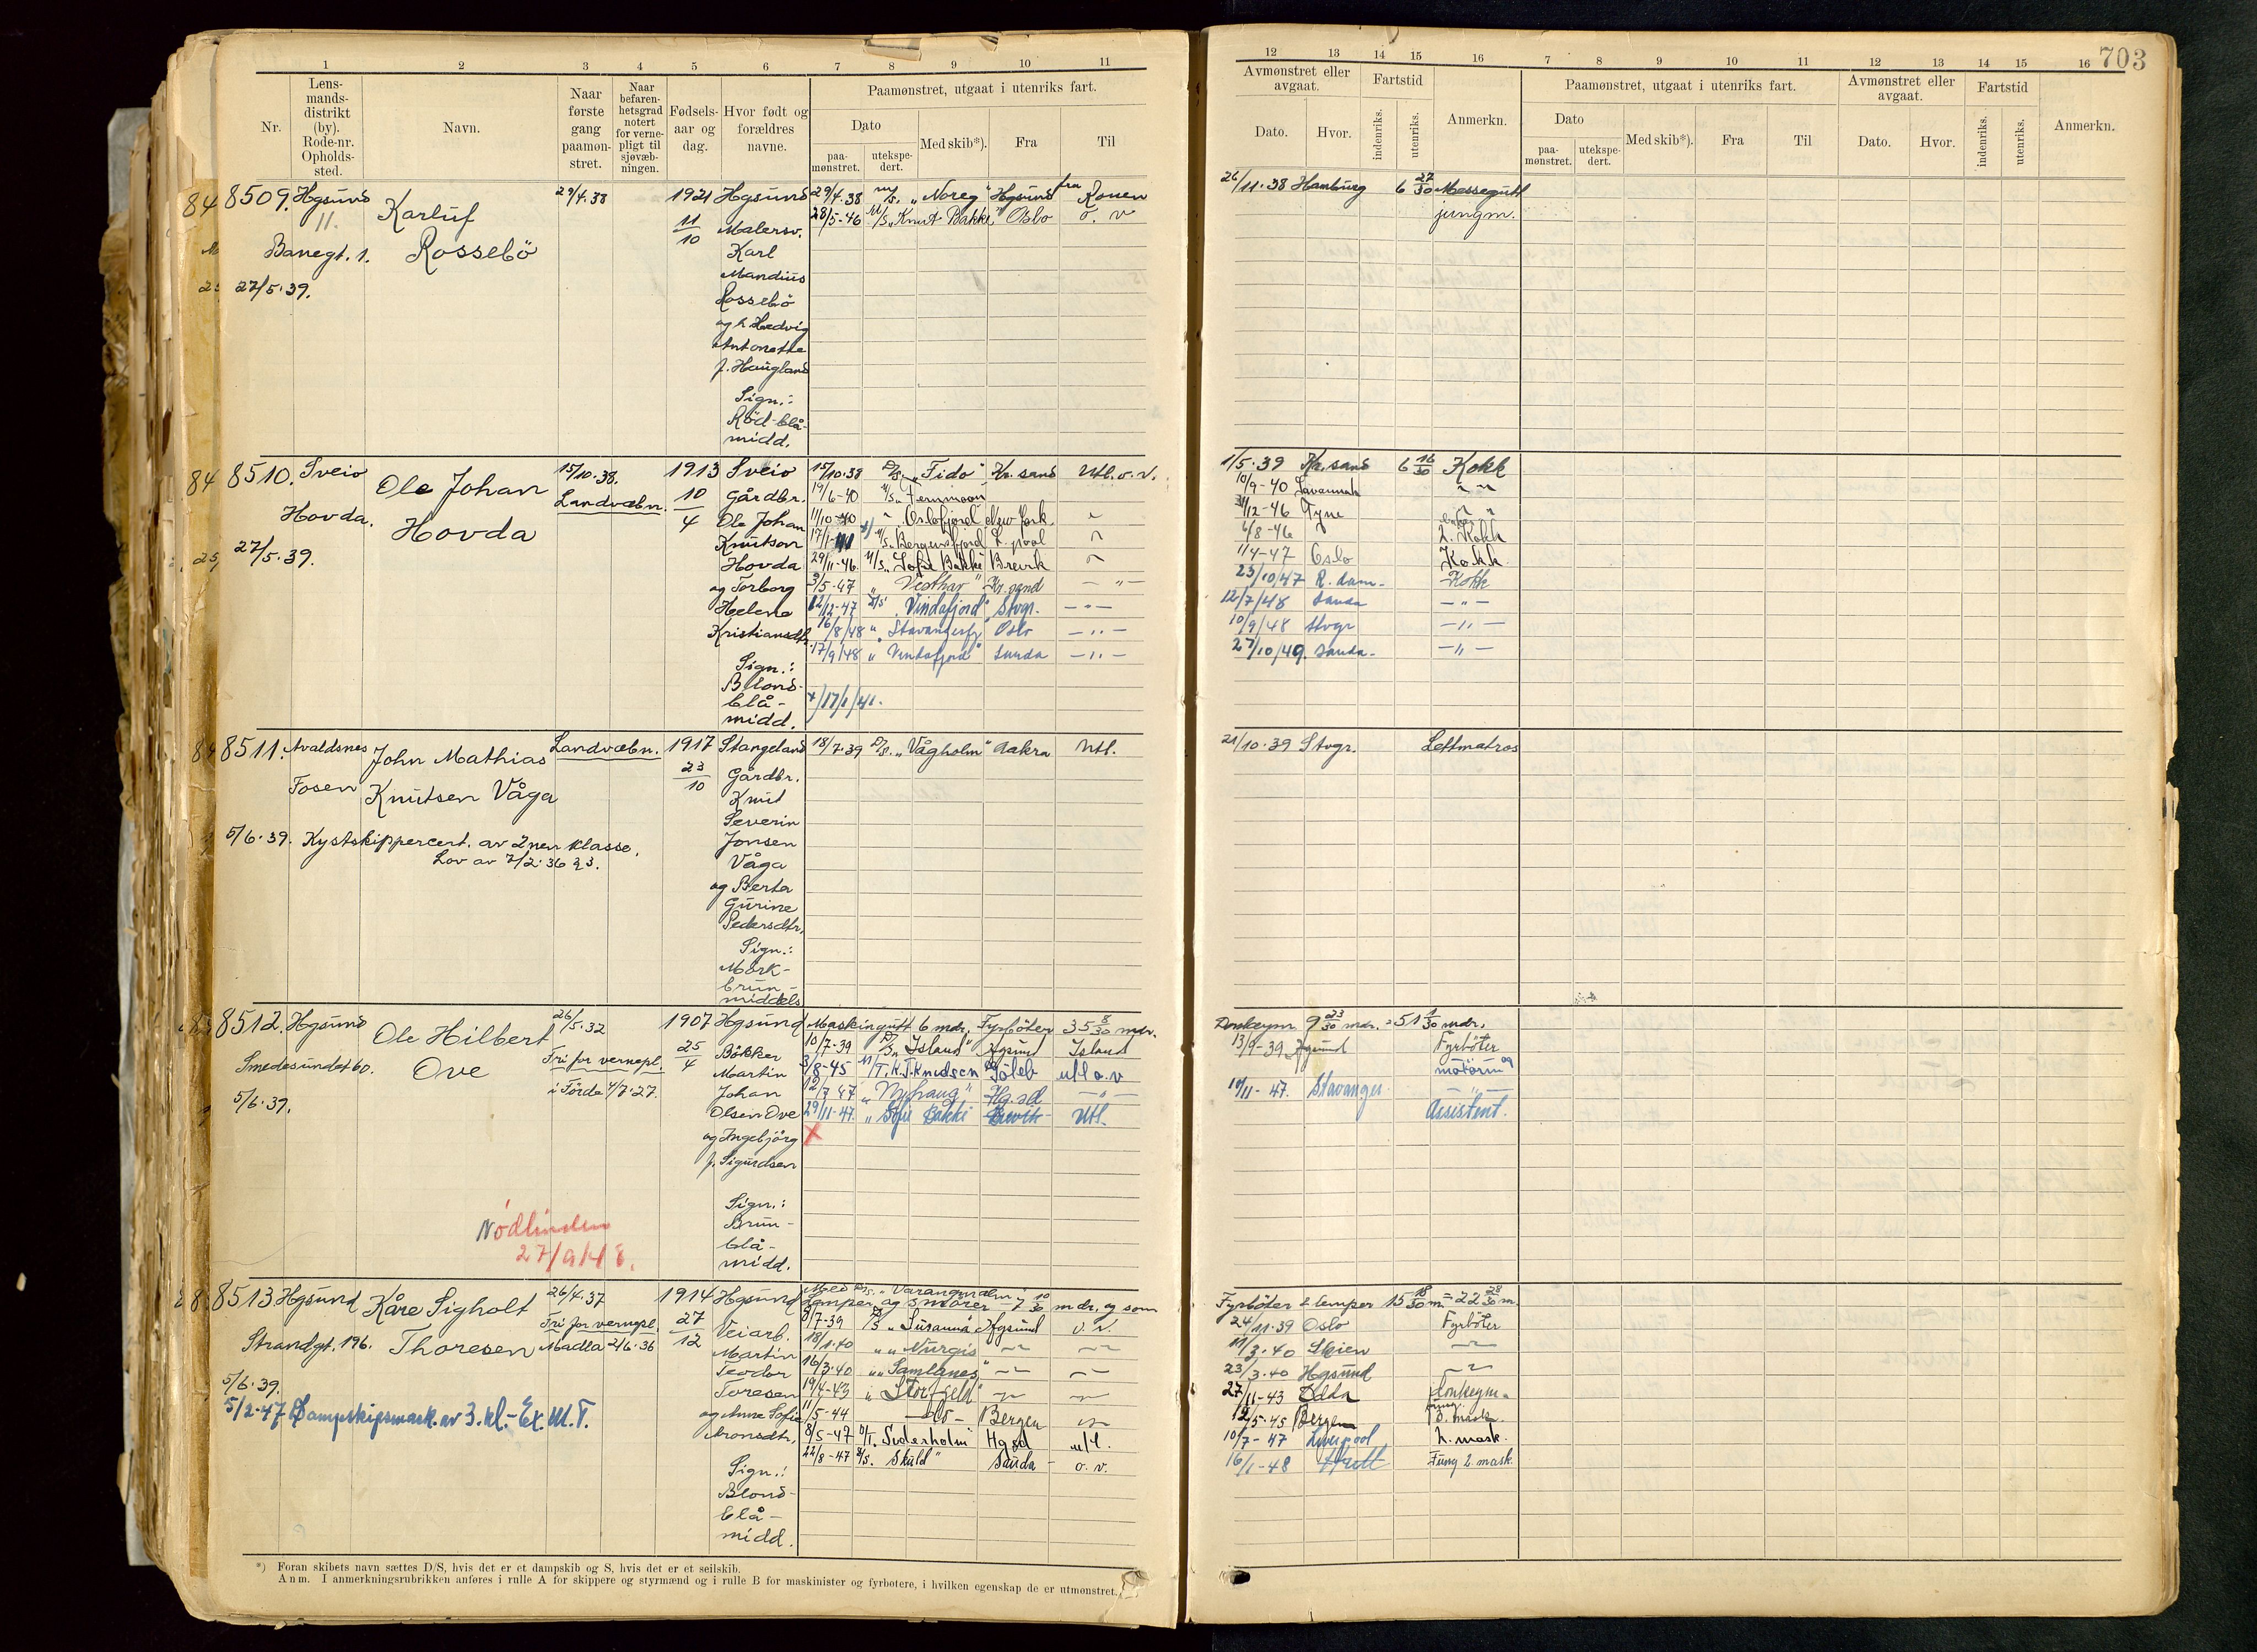 703
1 2 3 4 5 6 7 8 9 10 11
Nr.
Lens-
mands-
distrikt
(by).
Rode-nr.
Opholds-
sted.
Navn.
Naar
første
gang
paamøn-
stret.
Naar
befaren-
hetsgrad
notert
for verne-
pligt til
sjøvæb-
ningen.
Fødsels-
aar og
dag.
Hvor født og
forældres
navne.
Paamønstret, utgaat i utenriks fart.
Dato
paa-
mønstret.
utekspe-
dert.
Med skib*).
Fra
Til
12 13 14 15 16 7 8 9 10 11 12 13 14 15 16
Avmønstret eller
avgaat.
Dato.
Hvor.
Fartstid
indenriks.
utenriks.
Anmerkn.
Paamønstret, utgaat i utenriks fart.
Dato
paa-
mønstret.
utekspe-
dert.
Med skib*).
Fra
Til
Avmønstret eller
avgaat.
Dato.
Hvor.
Fartstid
indenriks.
utenriks.
Anmerkn.
8509. Hgsund
11.
Banegt. 1.
27/5.39.
Karluf
Rossebö
29/4.38
1921
11/10
Hgsund
Malersv.
Karl
Mandius
Rossebö
og h. Hedvig
Antonette
f. Haugland
Sign.:
Röd-blå-
midd.
29/4.38 M/S. „Noreg" Hgsund fra Rouen
28/5-46 M/S „Knut Bakke" Oslo o. v
26/11.38 Hamburg 6 27/30 Messegutt
jungm.
8510. Sveio
Hovda.
27/5.39.
Ole Johan
Hovda
15/10.38.
Landvæbn.
1913
10/4
Sveio
Gårdbr.
Ole Johan
Knutson
Hovda
og Torborg
Helena
Kristiansdtr.
Sign.:
Blond-
blå-
midd.
15/10.38 D/S. „Fido" Kr.sand Utl. o. v.
19/6-40 M/S „Fernmoor
11/10-40 " „Oslofjord" New York. "
17/1-41 M/S „Bergensfjord L.pool "
29/11-46. M/S „Sofie Bakke Brevik "
3/5-47 „ Vesthav" Kr.sand — " —
12/12-47 D/S „Vindafjord" Stvgr. — " —
16/8/48 " „Stavangerfj" Oslo — " —
17/9/48 " „Vindafjord" Sauda — " —
+/17/1/41.
1/5.39 Kr.sand 6 16/30 Kokk
10/9-40 Savannah " "
31/12-46 Tyne " "
6/8-46 2. Kokk
1/4-47 Oslo Kokk
23/10/47 R.dam- Kokk
12/7/48 Sauda — " —
10/9/48 Stvgr — " —
27/10/49. Sauda- — " —
8511. Avaldsnes
Fosen
John Mathias
Knutsen Våga
Landvæbn.
5/6.39. Kystskippercert. av 2nen klasse.
Lov av 7/2.36 § 3.
1917
23/10
Stangeland
Gårdbr.
Knut
Severin
Jonsen
Våga
og Berta
Gurine
Pedersdtr.
Sign.:
Mörk-
brun-
middels
18/7.39 D/S. „Vågholm" Aakra Utl.
21/10.39 Stvgr. Lettmatros
8512. Hgsund
Smedesundet 60.
5/6.39.
Ole Hilbert
Ove
26/5.32
Fri for vernepl.
i Förde 4/7.27.
1907
25/4
Hgsund
Bökker
Martin
Johan
Olsen Ove
og Ingebjörg
f. Sigurdsen
Sign.:
Brun-
blå-
midd.
Nödlinden
27/9/48.
Maskingutt 6 mdr, Fyrböter 35 8/30 mdr.
10/7-39 D/S „Island" Hgsund Island
3/8-45 M/T. K.J. Knudsen Göteb utl o. v
12/7-47 „ Nyhaug" Hg.sd — " —
29/11-47. " Sofie Bakke Brevik Utl.
Donkeym 9 23/30 mdr. = 51 1/30 mdr.
13/9-39 Hgsund Fyrböter
motorm og
14/11-47. Stavanger — " —
Assistent.
8513. Hgsund
Strandgt. 196.
5/6.39.
5/2-47 Dampskipsmask. av 3. kl.- Ex. M.T.
Kåre Sigholt
Thoresen
26/4.37
Fri for vernepl.
Madla 2/6.36
1914
27/12
Hgsund
Veiarb.
Martin
Teodor
Toresen
og Anne Sofie
Aronsdtr,
Sign.:
Blond-
blå-
midd.
Med D/S. „Varangmalm":
Lemper og smörer - 7 10/30 mdr, og som
8/7-39 D/S „Susanna" Hgsund o. v.
18/1.40 " " Nurgis " "
16/3.40 " " Samlanes" " "
19/4-43 " „Storfjeld" " "
11/5-44 — do — Bergen "
8/5-47 D/T. Suderholm Hgsd utl.
22/8-47 D/S. Skuld" Sauda - o. v.
Fyrböter & lemper 15 18/30 m. = 22 28/30 m.
24/11.39 Oslo Fyrböter
11/3.40 Skien "
23/3.40 Hgsund "
27/11-43 Odda Donkeym.
12/5-45 Bergen fung. 3. mask.
10/7-47 Liverpool 2. mask.
16/1-48 Hull Fung 2. mask.
*) Foran skibets navn sættes D/S, hvis det er et dampskib og S, hvis det er et seilskib.
Anm. I anmerkningsrubrikken anføres i rulle A for skippere og styrmænd og i rulle B for maskinister og fyrbøtere, i hvilken egenskap de er utmønstret.